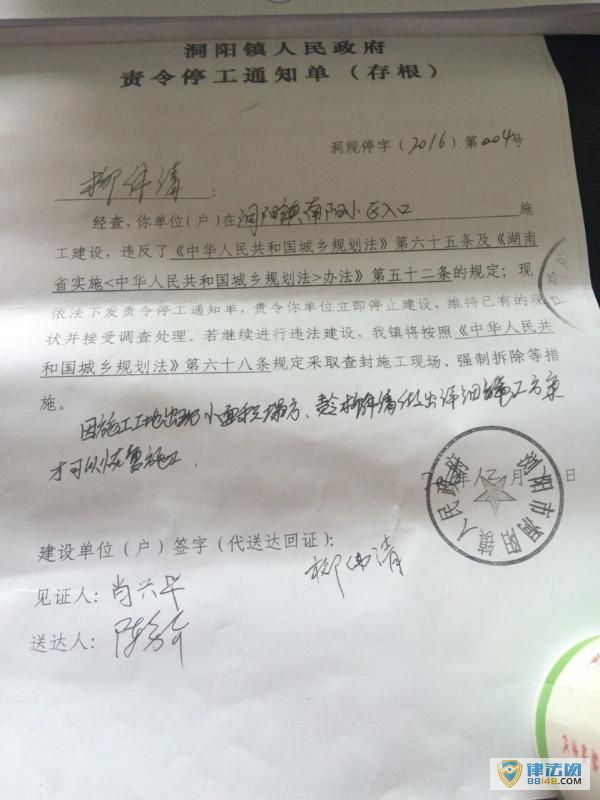 洞阳镇人民政府
责令停工通知单（存根）
洞规停字（2016）第004号
柳伟清：
经查，你单位（户）在洞阳镇南阳小区入口施
工建设，违反了《中华人民共和国城乡规划法》第六十五条及《湖南
省实施<中华人民共和国城乡规划法>办法》第五十二条的规定；现
依法下发责令停工通知单，责令你单位立即停止建设，维持已有的现
状并接受调查处理。若继续进行违法建设，我镇将按照《中华人民共
和国城乡规划法》第六十八条规定采取查封施工现场、强制拆除等措
施。
因施工工地出现小面积塌方、柳伟清做出详细施工方案
才可以恢复施工
年 月 日
浏阳市洞阳镇人民政府
建设单位（户）签字（代送达回证）：
柳伟清
见证人：肖兴华
送达人：陈
律法网
88148.com